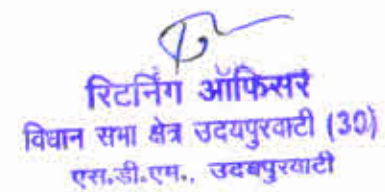 रिटर्निंग ऑफिसर
विधान सभा क्षेत्र उदयपुरवाटी (30)
एस.डी.एम., उदयपुरवाटी